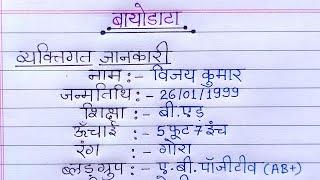 बायोडाटा
व्यक्तिगत जानकारी
नाम :- विजय कुमार
जन्मतिथि :- 26/01/1999
शिक्षा :- बी.एड़
ऊँचाई :- 5 फूट 7 इंच
रंग :- गोरा
ब्लड्ग्रुप :- ए.बी.पॉजीटीव (AB+)